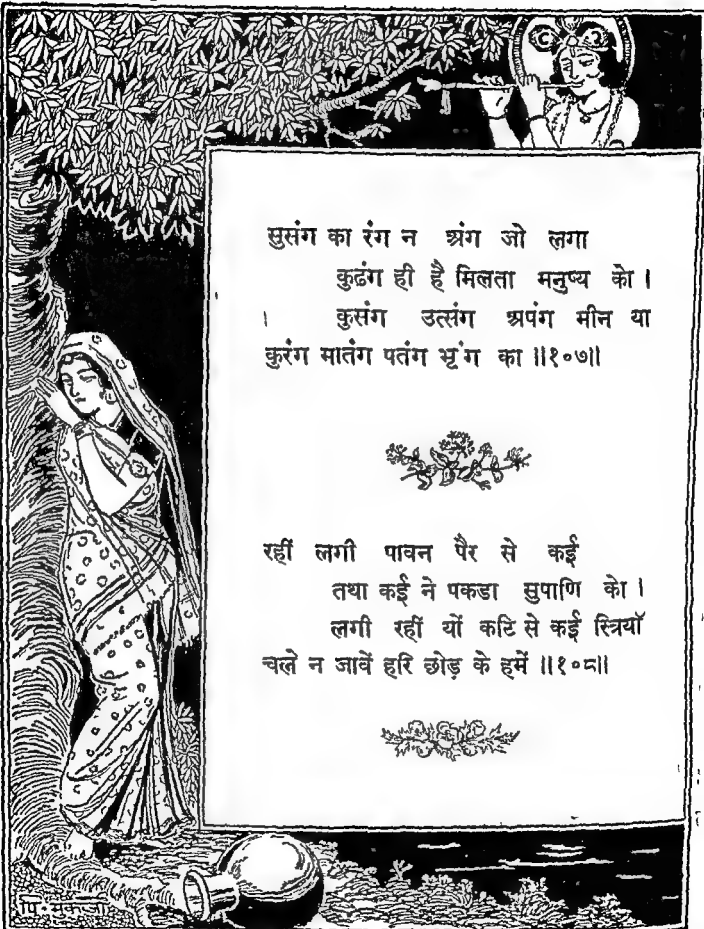 सुसंग का रंग न अंग जो लगा
कुढंग ही है मिलता मनुष्य को ।
। कुसंग उत्संग अपंग मीन या
कुरंग मातंग पतंग भृंग का ॥१०७॥
रहीं लगी पावन पैर से कई
तथा कई ने पकडा सुपाणि को ।
लगी रहीं यों कटि से कई स्त्रियाँ
चले न जावें हरि छोड़ के हमें ॥१०८॥
पि. मुकर्जी